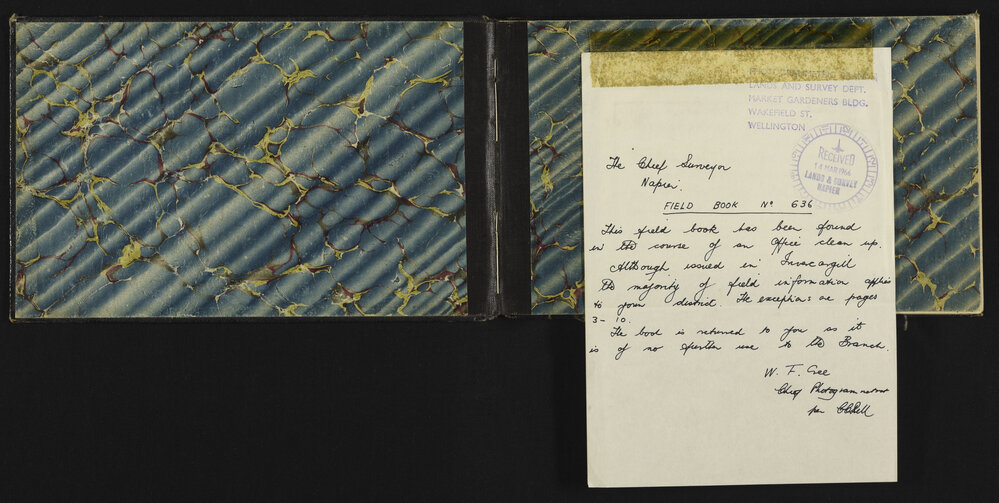 LANDS AND SURVEY DEPT.
MARKET GARDENERS BLDG.
WAKEFIELD ST.
WELLINGTON
RECEIVED
14 MAR 1966
LANDS & SURVEY
NAPIER
The Chief Surveyor
Napier.
FIELD BOOK No 636
This field book has been found
in the course of an office clean up.
Although issued in Invercargill
the majority of field information applies
to your district. The exceptions are pages
3 - 10.
The book is returned to you as it
is of no further use to the Branch.
W. F.
Chief Photogrammetrist
per